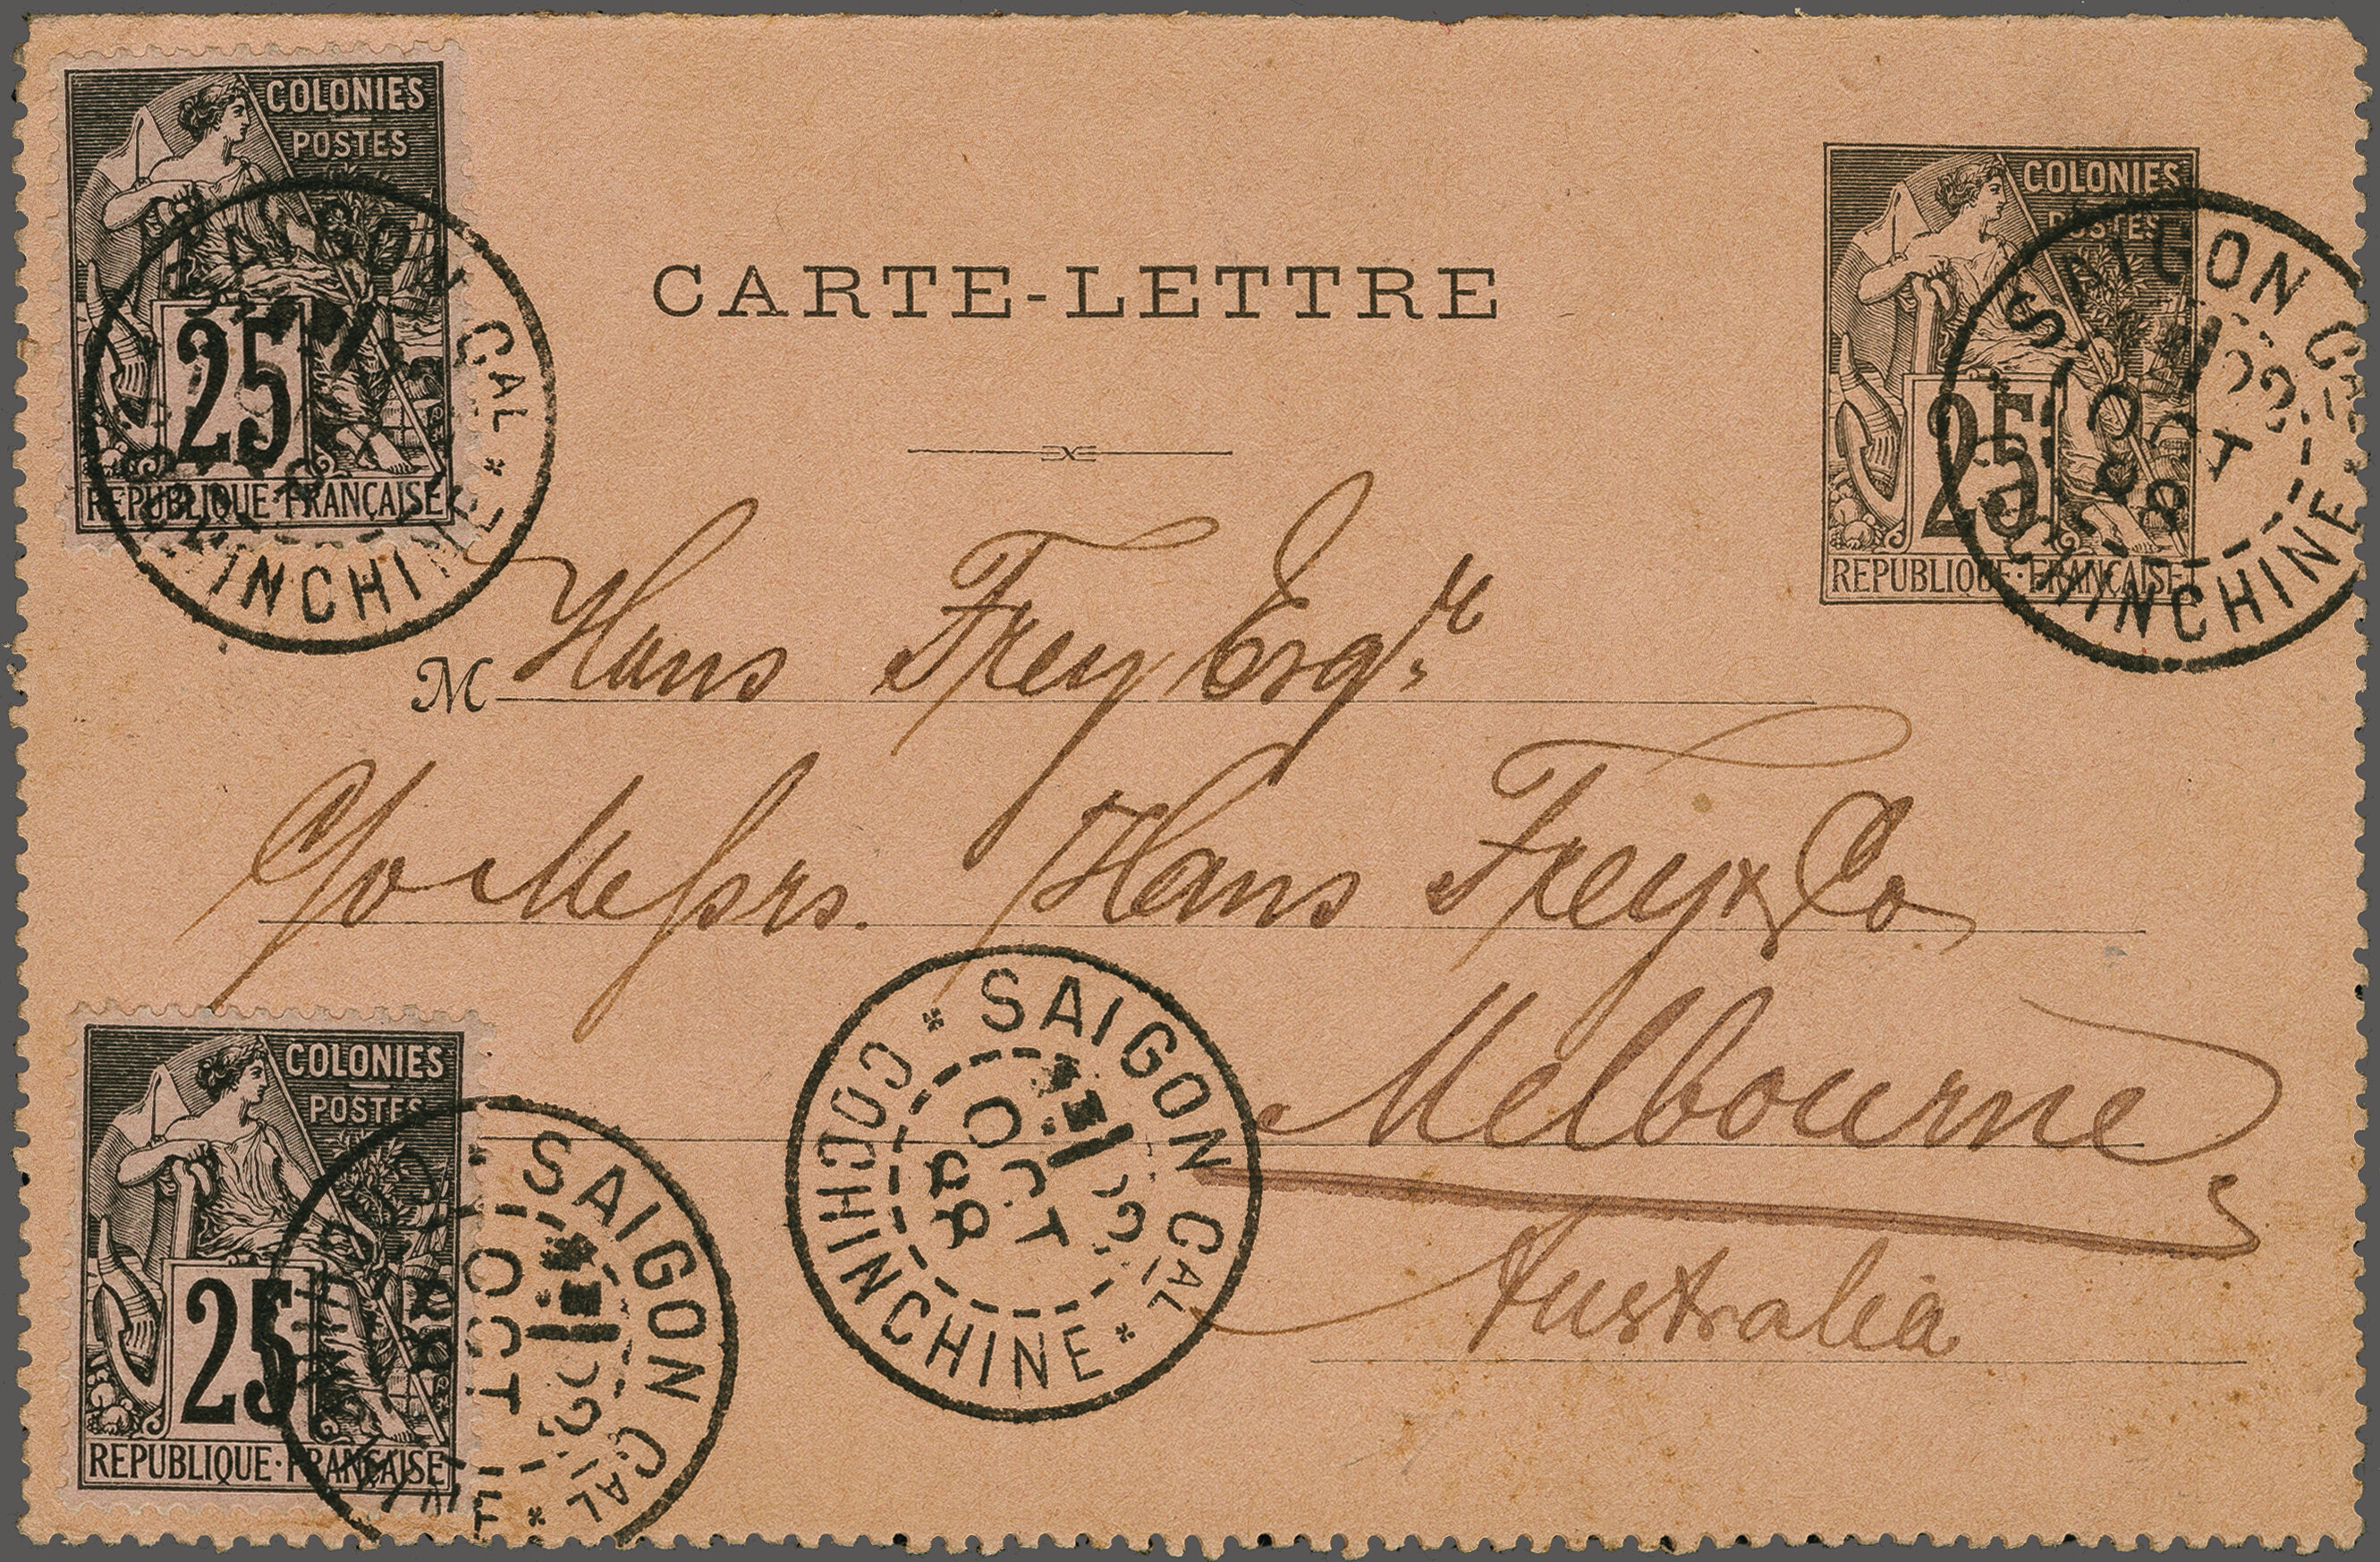 COLONIES
POSTES
25
REPUBLIQUE·FRANÇAISE
CAL *
INCHI
CARTE-LETTRE
COLONIES
POSTES
25
REPUBLIQUE·FRANÇAISE
SAIGON CAL
OCT
88
CHINCHINE
M Hans Frey Esqre
C/o Messrs. Hans Frey & Co
Melbourne
Australia
* SAIGON CAL *
OCT
88
COCHINCHINE
COLONIES
POSTES
25
REPUBLIQUE·FRANÇAISE
SAIGON CAL *
OCT